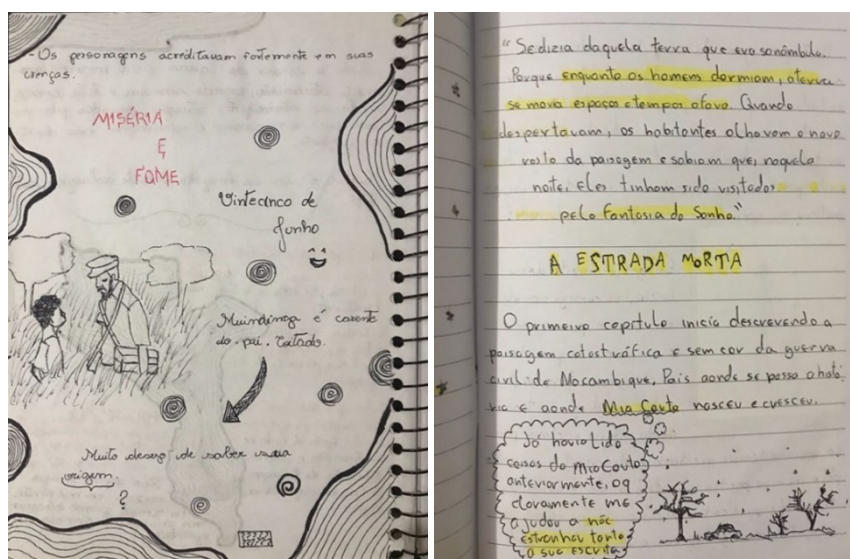 - Os personagens acreditavam fortemente em suas
crenças.
MISÉRIA
E
FOME
Vinte cinco de
Junho
Muindinga é carente
do pai. Coitado.
Muito desejo de saber usua
origem.
?
" Se dizia daquela terra que era sonâmbula.
Porque enquanto os homens dormiam, a terra
se movia espaços e tempos afora. Quando
despertavam, os habitantes olhavam o novo
rosto da paisagem e sabiam que, naquela
noite, eles tinham sido visitados
pela fantasia do sonho."
A ESTRADA MORTA
O primeiro capitulo inicia descrevendo a
paisagem catastráfica e sem cor da guerra
civil de Mocambique, País aonde se passa a histó
ria e aonde Mia Couto nasceu e cresceu.
Já havia lido
coisas do Mia Couto
anteriormente, oq
claramente me
ajudou a não
estranhar tanto
a sua escrita